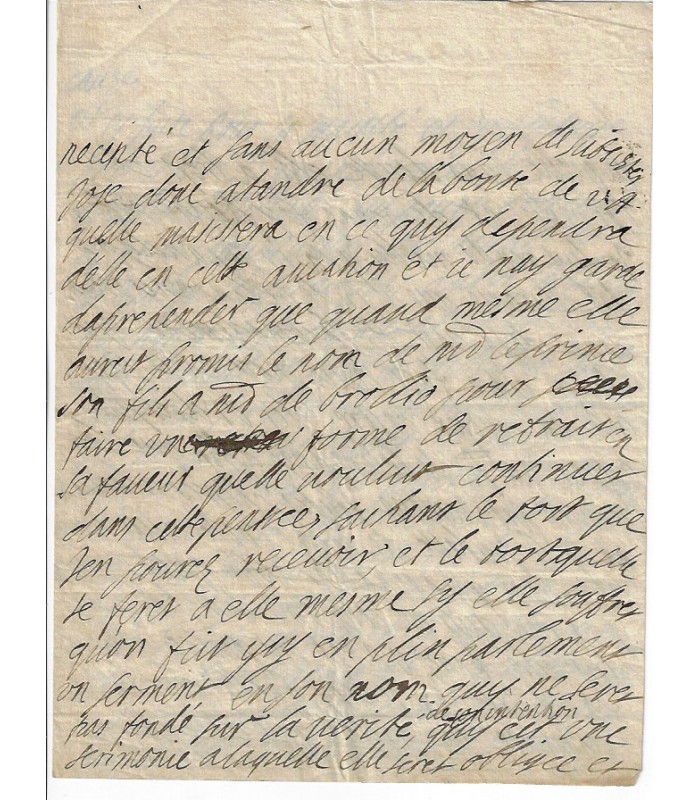 necesité et sans aucun moyen de subsister
jose donc atandre de la bonté de v A
quelle masistera en ce quy dependra
delle en cette ocation et ie nay garde
daprehender que quand mesme elle
auret promis le nom de md le prince
son fils a md de brollio pour
faire vne forme de retrait en
sa faueur quelle voulut continuer
dans cette pensée, sachant le tort que
jen pourez receuoir, et le tort quelle
se feret a elle mesme sy elle soufret
quon fit ysy en plin parlement
un serment en son nom quy ne seret
pas fondé sur la verité de son intention, quy est une
serimonie a laquelle elle seret obligee et